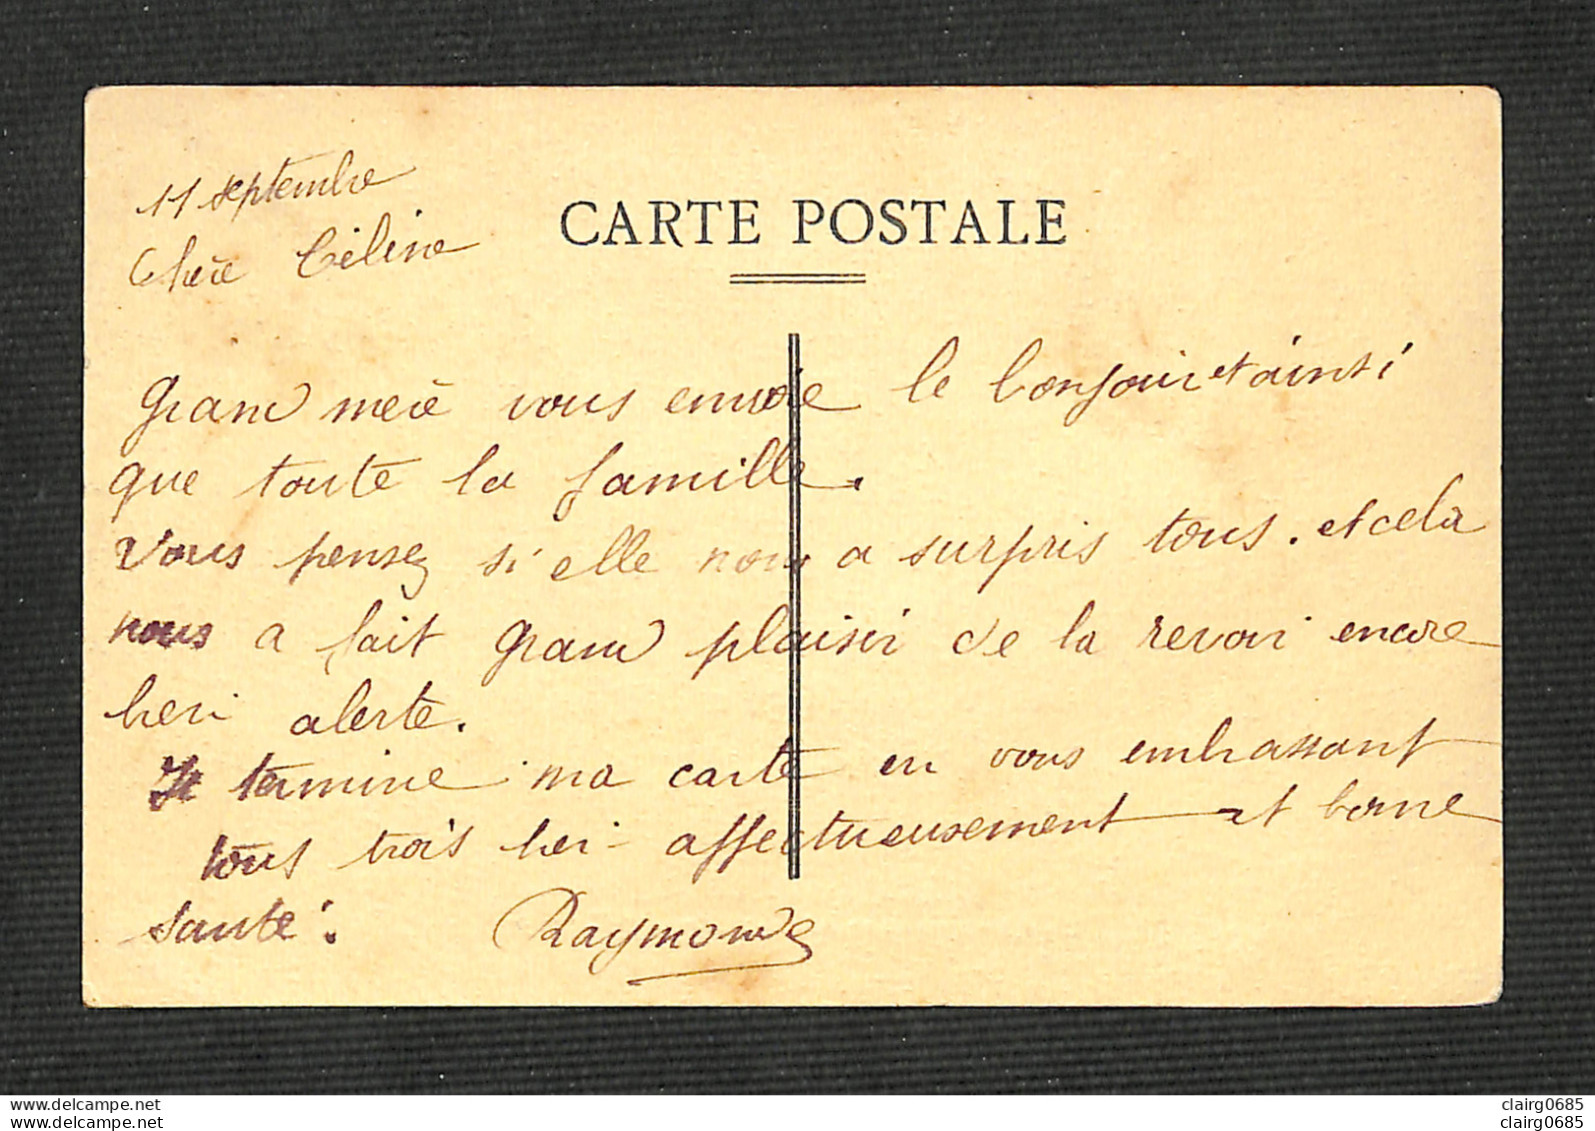 CARTE POSTALE
11 septembre
Chère Céline
Grand mère vous envoie le bonjour et ainsi
que toute la famille.
Vous pensez si elle nous a surpris tous. et cela
nous a fait grand plaisir de la revoir encore
bien alerte.
Je termine ma carte en vous embrassant
tous trois bien affectueusement et bonne
santé.
Raymonde
www.delcampe.net
www.delcampe.net
clairg0685
clairg0685